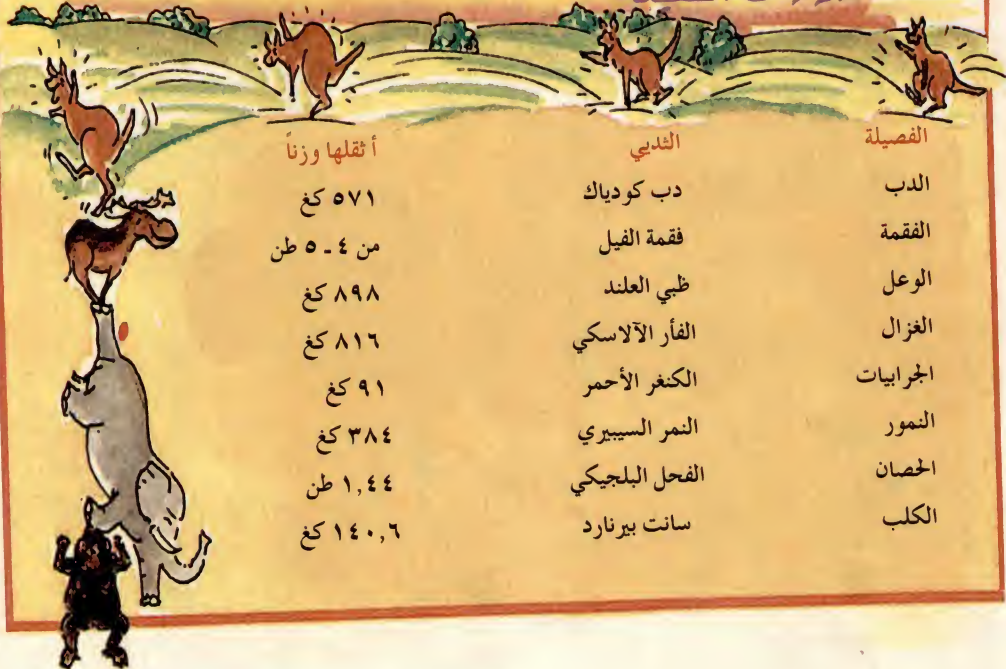 الفصيلة الثديي أثقلها وزناً
الدب دب كودياك ٥٧١ كغ
الفقمة فقمة الفيل من ٤ ـ ٥ طن
الوعل ظبي العلند ٨٩٨ كغ
الغزال الفأر الآلاسكي ٨١٦ كغ
الجرابيات الكنغر الأحمر ٩١ كغ
النمور النمر السيبيري ٣٨٤ كغ
الحصان الفحل البلجيكي ١,٤٤ طن
الكلب سانت بيرنارد ١٤٠,٦ كغ